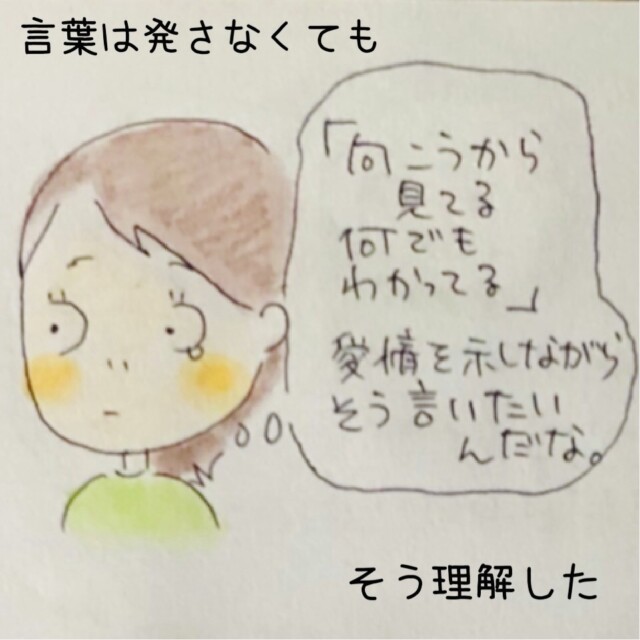 言葉は発さなくても
「向こうから
見てる
何でも
わかってる」
愛情を示しながら
そう言いたい
んだな。
そう理解した